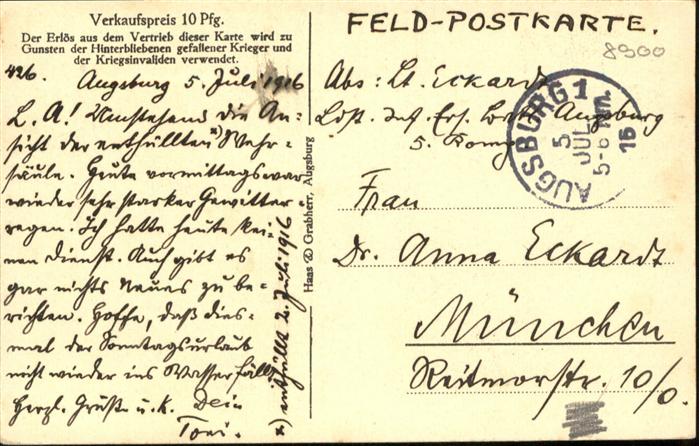 Verkaufspreis 10 Pfg.
Der Erlös aus dem Vertrieb dieser Karte wird zu
Gunsten der Hinterbliebenen gefallener Krieger und
der Kriegsinvaliden verwendet.
426. Augsburg 5. Juli 1916
L. A! Umstehend die An-
sicht der enthüllten x) Wehr-
säule. Heute vormittags war
wieder sehr starker Gewitter-
regen. Ich hatte heute kei-
nen Dienst. Auch gibt es
gar nichts Neues zu be-
richten. Hoffe, daß dies-
mal der Sonntagsurlaub
nicht wieder ins Wasser fällt.
Herzl. Gruß u. K. Dein
Toni.
x) enthüllt 2. Juli 1916
Haas & Grabherr, Augsburg
FELD-POSTKARTE.
8900
Abs: Lt. Eckardt
Ldst. Inf. Ers. Batl. Augsburg
5. Komp.
AUGSBURG 1
5
JUL
5-6 Nm.
16
Frau
Dr. Anna Eckardt
München
Reitmorstr. 10/0.